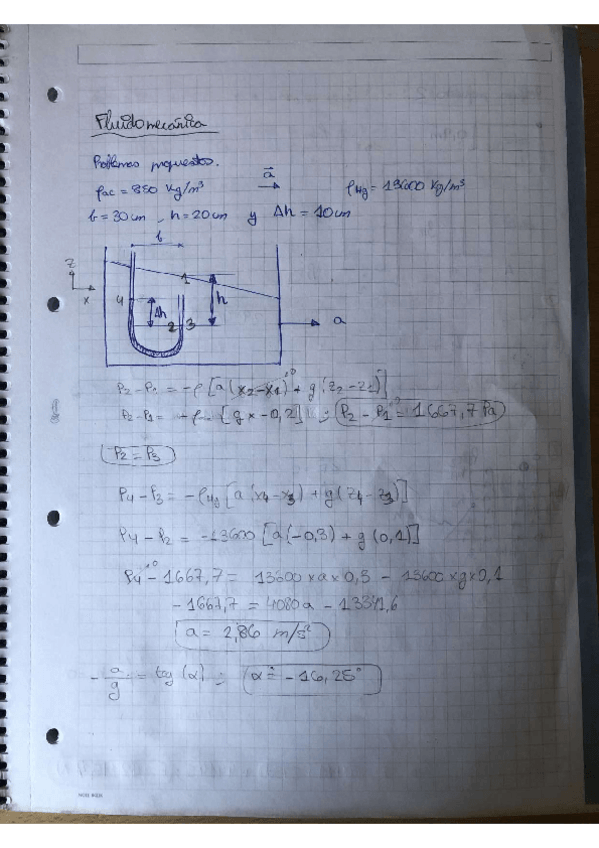 Fluidomecánica
Problemas propuestos.
ρac = 850 Kg/m³ a⃗ ρHg = 13600 Kg/m³
b = 30cm , h = 20cm y Δh = 10cm
b
z
x
1
4
Δh
h
2 3
a
P2 - P1 = -ρ [a(x2-x1)⁰ + g(z2-z1)]
P2-P1 = [g x -0,2] ; P2 - P1 = 1667,7 Pa
P2 = P3
P4 - P3 = -ρHg [a(x4-x3) + g(z4-z3)]
P4 - P2 = -13600 [a(-0,3) + g(0,1)]
P4⁰ - 1667,7 = 13600 x a x 0,3 - 13600 x g x 0,1
-1667,7 = 4080a - 13341,6
a = 2,86 m/s²
- a/g = tag (α) ; α = -16,25°